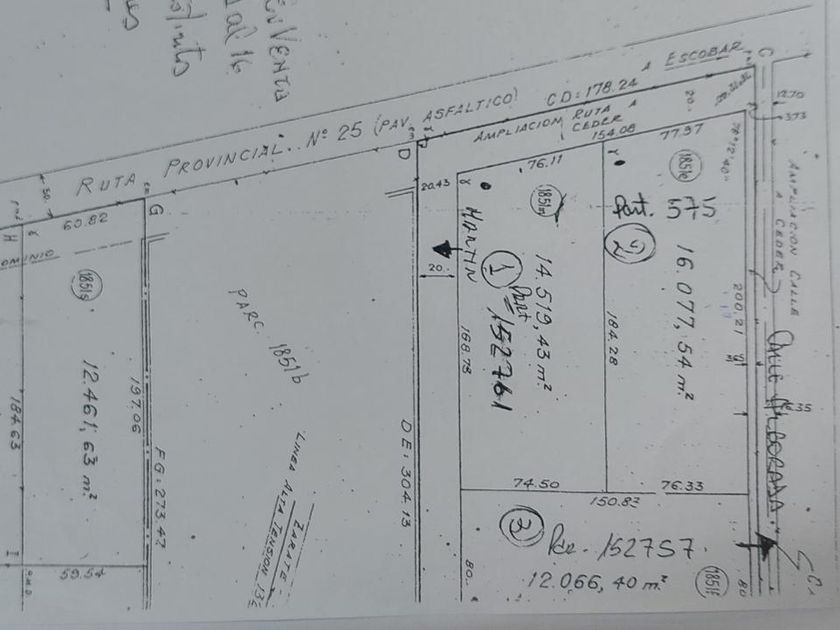 EN VENTA
al 16
A ESCOBAR
CD: 178.24
RUTA PROVINCIAL. Nº 25 (PAV. ASFALTICO)
AMPLIACION RUTA A
CEDER
154.08
77.97
76.11
20.
78°12'40"
12.70
3.73
AMPLIACION CALLE
A CEDER
C
D
G
H
I
50.
60.82
DOMINIO
1851g
12.461,63 m²
197.06
184.63
FG: 273.47
59.54
PARC. 1851b
LINEA ALTA TENSION 132
ZARATE
DE: 304.13
20.43
20.
MARTIN
1
Part
152761
14.519,43 m²
168.78
74.50
1851e
Part. 575
2
16.077,54 m²
184.28
200.21
76.33
150.83
3
152757
12.066,40 m²
1851f
80.
80
CALLE ALBORADA